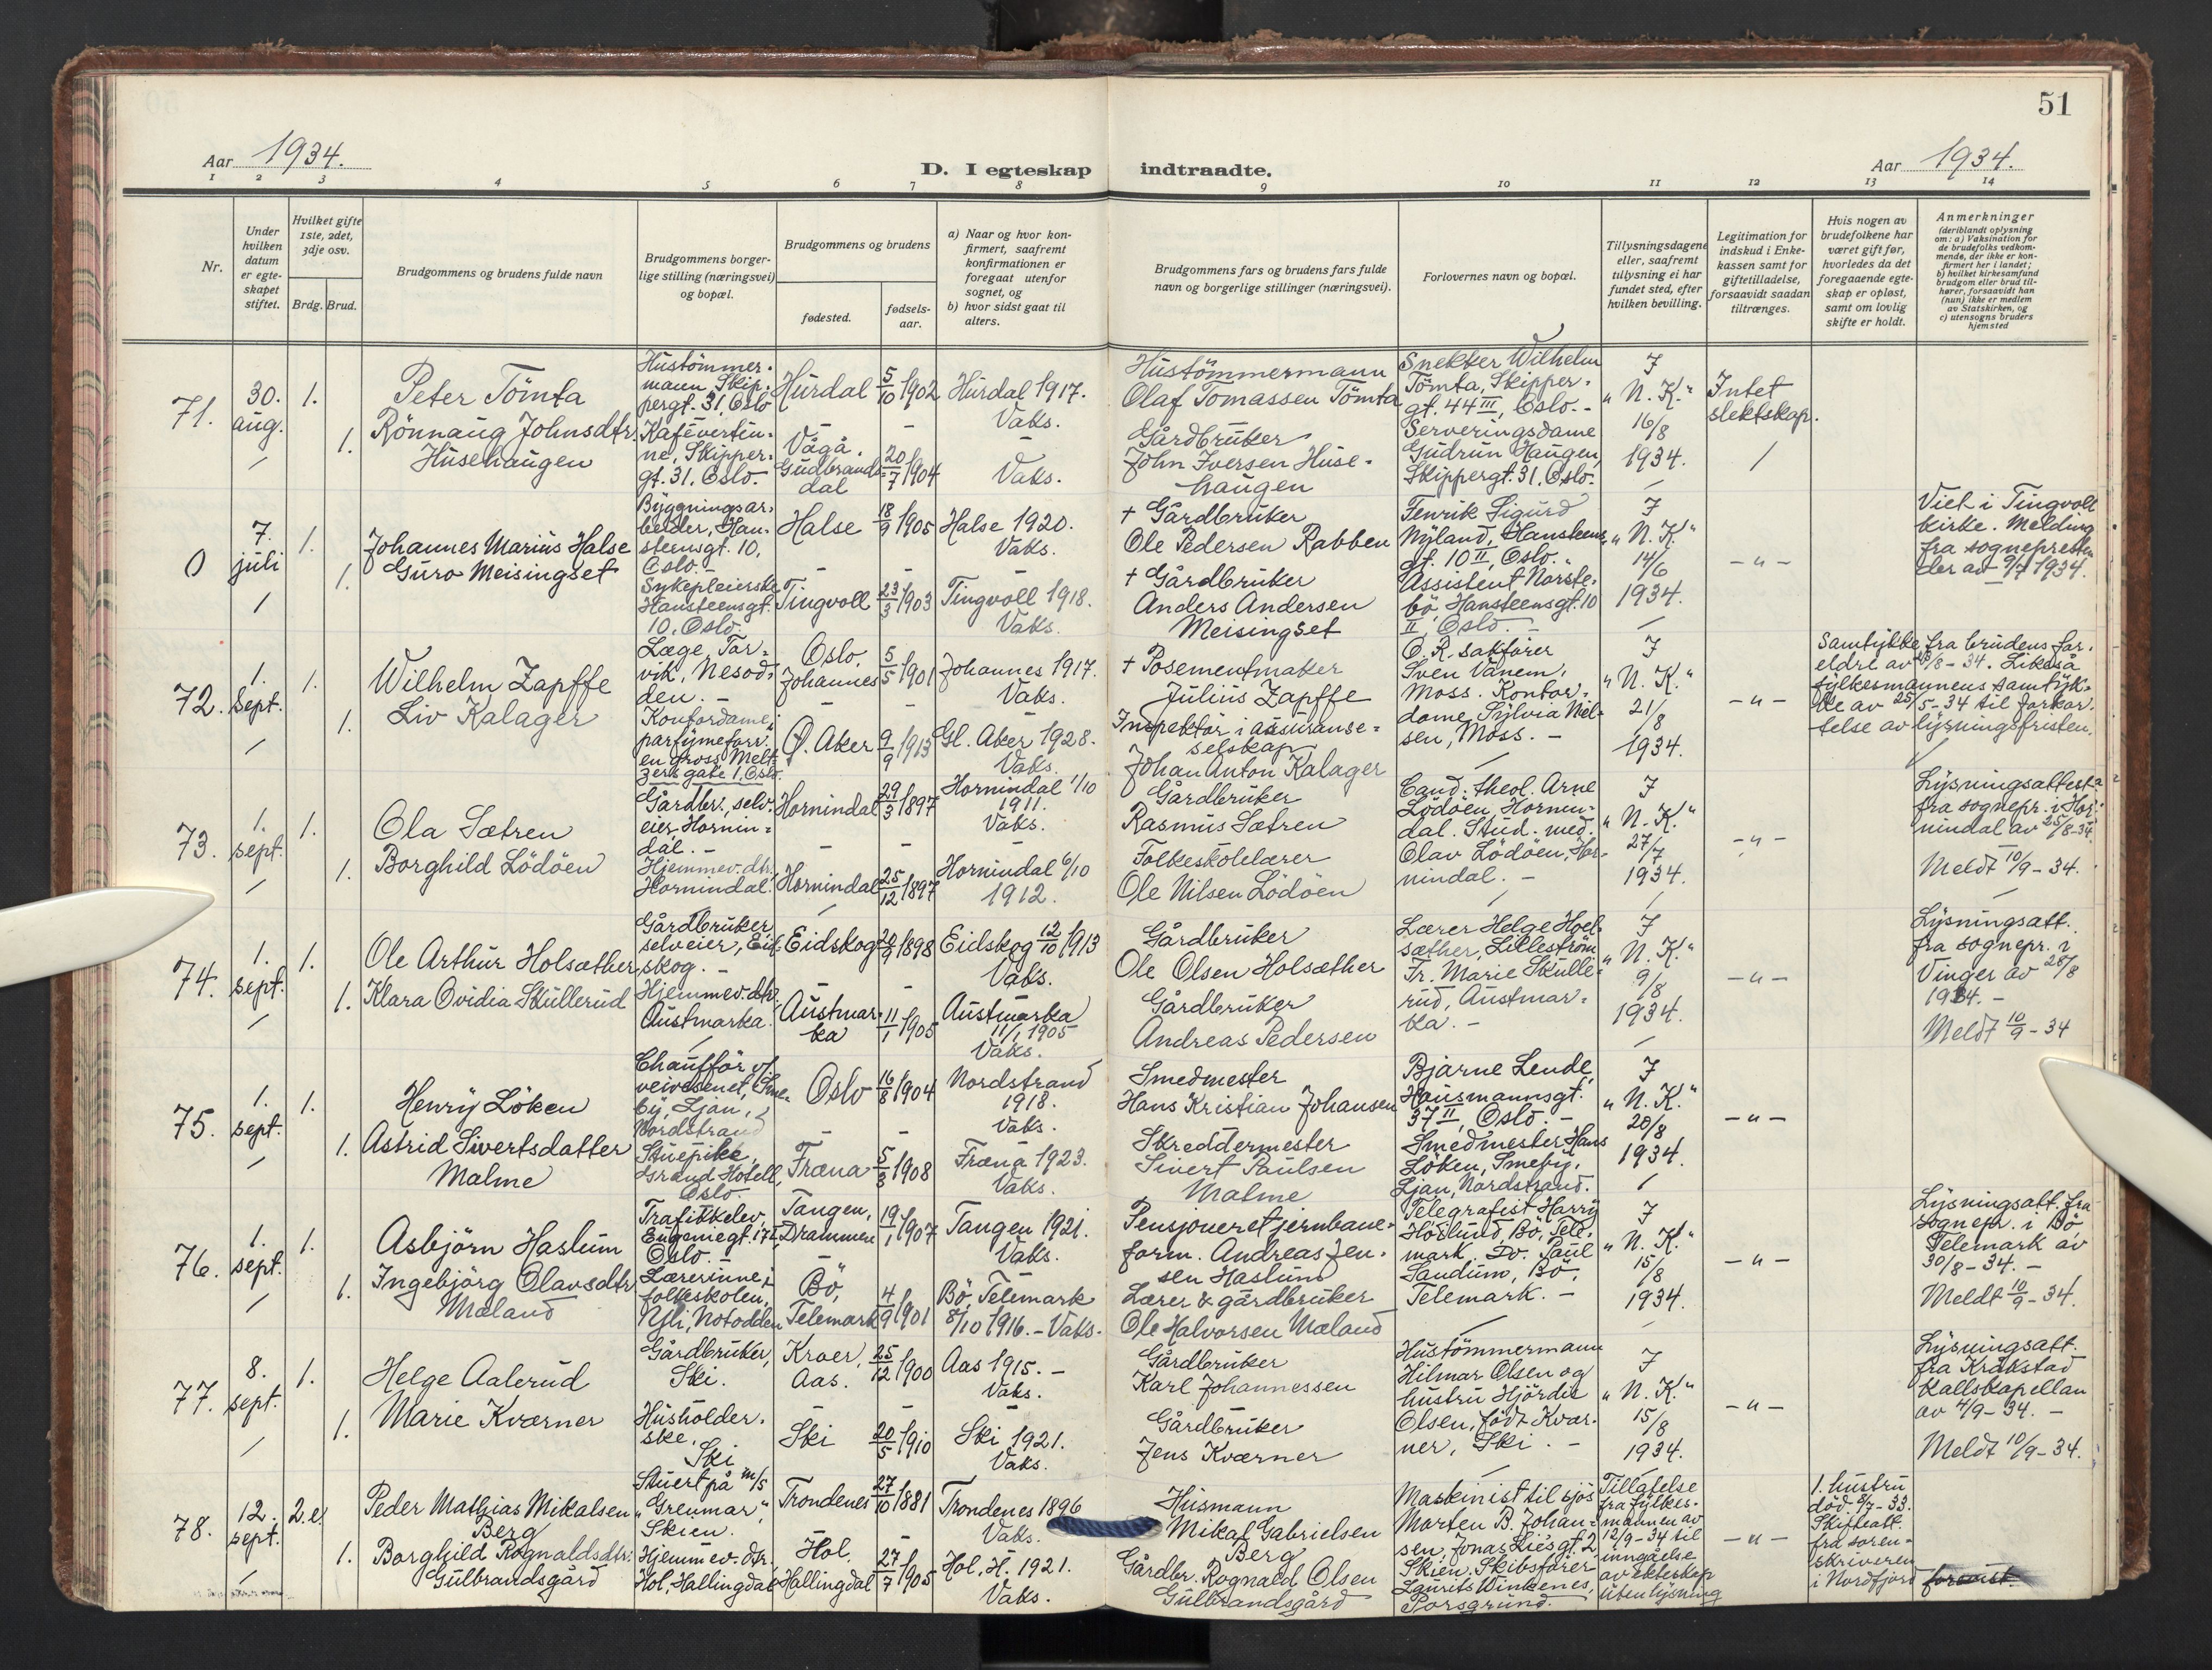 51
Aar 1934.
D. I egteskap indtraadte.
Aar 1934.
1 2 3 4 5 6 7 8 9 10 11 12 13 14
Nr.
Under
hvilken
datum
er egte-
skapet
stiftet.
Hvilket gifte
1ste, 2det,
3dje osv.
Brdg. Brud.
Brudgommens og brudens fulde navn
Brudgommens borger-
lige stilling (næringsvei)
og bopæl.
Brudgommens og brudens
fødested.
fødsels-
aar.
a) Naar og hvor kon-
firmert, saafremt
konfirmationen er
foregaat utenfor
sognet, og
b) hvor sidst gaat til
alters.
Brudgommens fars og brudens fars fulde
navn og borgerlige stillinger (næringsvei).
Forlovernes navn og bopæl.
Tillysningsdagene
eller, saafremt
tillysning ei har
fundet sted, efter
hvilken bevilling.
Legitimation for
indskud i Enke-
kassen samt for
giftetilladelse,
forsaavidt saadan
tiltrænges.
Hvis nogen av
brudefolkene har
været gift før,
hvorledes da det
foregaaende egte-
skap er opløst,
samt om lovlig
skifte er holdt.
Anmerkninger
(deriblandt oplysning
om: a) Vaksination for
de brudefolks vedkom-
mende, der ikke er kon-
firmert her i landet;
b) hvilket kirkesamfund
brudgom eller brud til-
hører, forsaavidt han
(hun) ikke er medlem
av Statskirken, og
c) utensogns bruders
hjemsted
71.
30.
aug.
1.
1.
Peter Tömta
Rönnaug Johnsdtr.
Husehaugen
Hustömmer-
mann, Skip-
pergt. 31, Oslo
Kafévertin-
ne, Skipper-
gt. 31. Oslo.
Hurdal 5/10 1902
Vågå.
Gudbrands-
dal
20/7 1904
Hurdal 1917.
Vaks.
Vaks.
Hustömmermann
Olaf Tomassen Tömta
Gårdbruker
John Iversen Huse-
haugen
Snekker Wilhelm
Tömta, Skipper-
gt. 44 III, Oslo. -
Serveringsdame
Gudrun Haugen,
Skippergt. 31. Oslo.
I
"N. K."
16/8
1934.
Intet
slektskap.
0
7.
juli
1.
1.
Johannes Marius Halse
Guro Meisingset
Bygningsar-
beider, Han-
steensgt. 10,
Oslo. -
Sykepleierske
Hansteensgt.
10, Oslo.
Halse 18/9 1905
Tingvoll 23/3 1903
Halse 1920.
Vaks.
Tingvoll 1918.
Vaks.
+ Gårdbruker
Ole Pedersen Rabben
+ Gårdbruker
Anders Andersen
Meisingset
Fenrik Sigurd
Nyland, Hansteens-
gt. 10 II, Oslo.
Assistent Norste-
bö, Hansteensgt. 10
II, Oslo. -
I
"N. K."
14/6
1934.
- " -
Viet i Tingvoll
kirke. Melding
fra sognepresten
der av 9/7 1934.
72.
1.
sept.
1.
1.
Wilhelm Zapffe
Liv Kalager
Læge, Tor-
vik, Nesod-
den. -
Kontordame i
parfymeforr.
en gross, Melt-
zers gate 1, Oslo.
Oslo,
Johannes 5/5 1901
Ø. Aker 9/9 1913
Johannes 1917.
Vaks.
Gl. Aker 1928.
Vaks.
+ Posementmaker
Julius Zapffe
Inspektör i assuranse-
selskap
Johan Anton Kalager
O. R. sakförer
Sven Vanem,
Moss. Kontor-
dame Sylvia Niel-
sen, Moss. -
I
"N. K."
21/8
1934.
- " -
Samtykke fra brudens for-
eldre av /8 - 34. Likeså
fylkesmannens samtyk-
ke av 25/5 - 34 til forkor-
telse av lysningsfristen.
73.
1.
sept.
1.
1.
Ola Sætren
Borghild Lödöen
Gårdbr., selv-
eier, Hornin-
dal. -
Hjemmev. dtr.
Hornindal.
Hornindal 29/3 1897
Hornindal 25/12 1897
Hornindal 1/10
1911.
Vaks.
Hornindal 6/10
1912.
Gårdbruker
Rasmus Sætren
Folkeskolelærer
Ole Nilsen Lödöen
Cand. theol. Arne
Lödöen, Hornin-
dal. Stud. med.
Olav Lödöen, Hor-
nindal. -
I
"N. K."
27/7
1934.
- " -
Lysningsattest
fra sognepr. i Hor-
nindal av 25/8-34.
Meldt 10/9 - 34.
74.
1.
sept.
1.
1.
Ole Arthur Holsæther
Klara Ovidia Skullerud
Gårdbruker,
selveier, Eid-
skog. -
Hjemmev. dtr.
Austmarka.
Eidskog 20/9 1898
Austmar-
ka
11/1 1905
Eidskog 12/10 1913
Vaks.
Austmarka
11/1 1905
Vaks.
Gårdbruker
Ole Olsen Holsæther
Gårdbruker
Andreas Pedersen
Lærer Helge Hol-
sæther, Lilleström
Fr. Marie Skulle-
rud, Austmar-
ka. -
I
"N. K."
9/8
1934.
- " -
Lysningsatt.
fra sognepr. i
Vinger av 28/8
1934. -
Meldt 10/9 - 34
75.
1.
sept.
1.
1.
Henry Löken
Astrid Sivertsdatter
Malme
Chaufför v/
veivesenet, Sme-
by, Ljan,
Nordstrand
Stuepike,
Grand Hotell,
Oslo.
Oslo 16/8 1904
Fræna 5/3 1908
Nordstrand
1918.
Vaks.
Fræna 1923.
Vaks.
Smedmester
Hans Kristian Johansen
Skreddermester
Sivert Paulsen
Malme
Bjarne Lende,
Hausmannsgt.
37 II, Oslo. -
Smedmester Hans
Löken, Smeby,
Ljan, Nordstrand.
I
"N. K."
20/8
1934.
- " -
76.
1.
sept.
1.
1.
Asbjörn Haslum
Ingebjörg Olavsdtr.
Mæland
Trafikkelev,
Eugeniegt. 17 I,
Oslo. -
Lærerinne i
folkeskolen,
Yli, Notodden
Tangen,
Drammen
19/1 1907
Bö,
Telemark 4/9 1901
Tangen 1921.
Vaks.
Bö, Telemark
8/10 1916. - Vaks.
Pensjoneret jernbane-
form. Andreas Jen-
sen Haslum
Lærer & gårdbruker
Ole Halvorsen Mæland
Telegrafist Harry
Hödlund, Bö, Tele-
mark. Do. Paul
Sandum, Bö,
Telemark. -
I
"N. K."
15/8
1934.
- " -
Lysningsatt. fra
sognepr. i Bö
Telemark av
30/8 - 34. -
Meldt 10/9 - 34.
77.
8.
sept.
1.
1.
Helge Aalerud
Marie Kværner
Gårdbruker,
Ski.
Husholder-
ske,
Ski
Kroer,
Aas.
25/12 1900
Ski 20/5 1910
Aas 1915. -
Vaks.
Ski 1921.
Vaks.
Gårdbruker
Karl Johannessen
Gårdbruker
Jens Kværner
Hustömmermann
Hilmar Olsen og
hustru Hjördis
Olsen, födt Kvær-
ner, Ski. -
I
"N. K."
15/8
1934.
- " -
Lysningsatt.
fra Kråkstad
kallskapellan
av 4/9 - 34. -
Meldt 10/9 - 34.
78.
12.
sept.
2.e.
1.
Peder Mathias Mikalsen
Berg
Borghild Rognaldsdtr.
Gulbrandsgård
Stuert på m/s
"Grenmar",
Skien.
Hjemmev. dtr.
Hol, Hallingdal
Trondenes 27/10 1881
Hol,
Hallingdal
27/7 1905
Trondenes 1896
Vaks.
Hol, H. 1921.
Vaks.
Husmann
Mikal Gabrielsen
Berg
Gårdbr. Rognald Olsen
Gulbrandsgård
Maskinist til sjös
Morten B. Johan-
sen, Jonas Liesgt. 2
Skien. Skibsförer
Laurits Winkenes,
Porsgrund.
Tillatelse
fra fylkes-
mannen av
12/9 - 34 til
inngåelse
av ekteskap
uten lysning
- " -
1. hustru
död 8/7 - 33.
Skifteatt.
fra soren-
skriveren
i Nordfjord